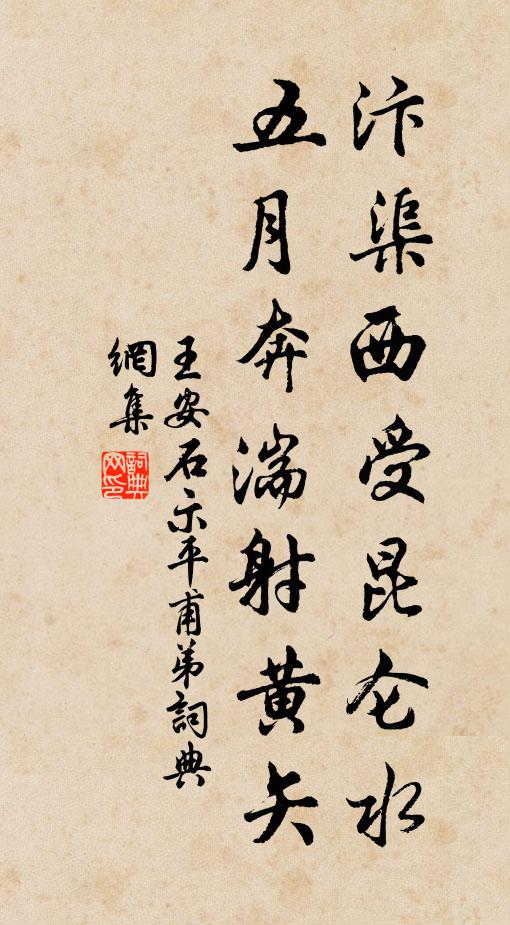 汴渠西受昆仑水
五月奔湍射黄矢
王安石示平甫弟詞典
網集
詞典
网印